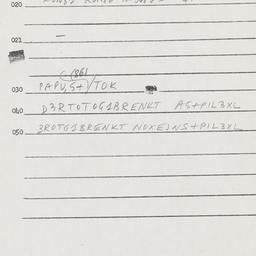 020
021 —
C(86)
030 PAPV,S+)/TOK
040 D3RTOTOG1BRENKT AS+PIL3XL
050 3ROTG1BRENKT NOXE)NS+PIL3XL